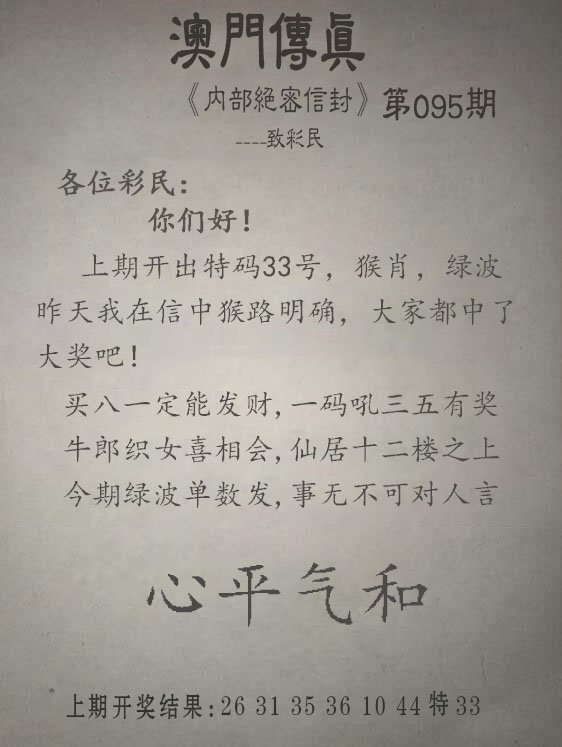 澳門傳眞
《内部絕密信封》第095期
----致彩民
各位彩民：
你们好！
上期开出特码33号，猴肖，绿波
昨天我在信中猴路明确，大家都中了
大奖吧！
买八一定能发财,一码吼三五有奖
牛郎织女喜相会,仙居十二楼之上
今期绿波单数发,事无不可对人言
心平气和
上期开奖结果:26 31 35 36 10 44 特 33